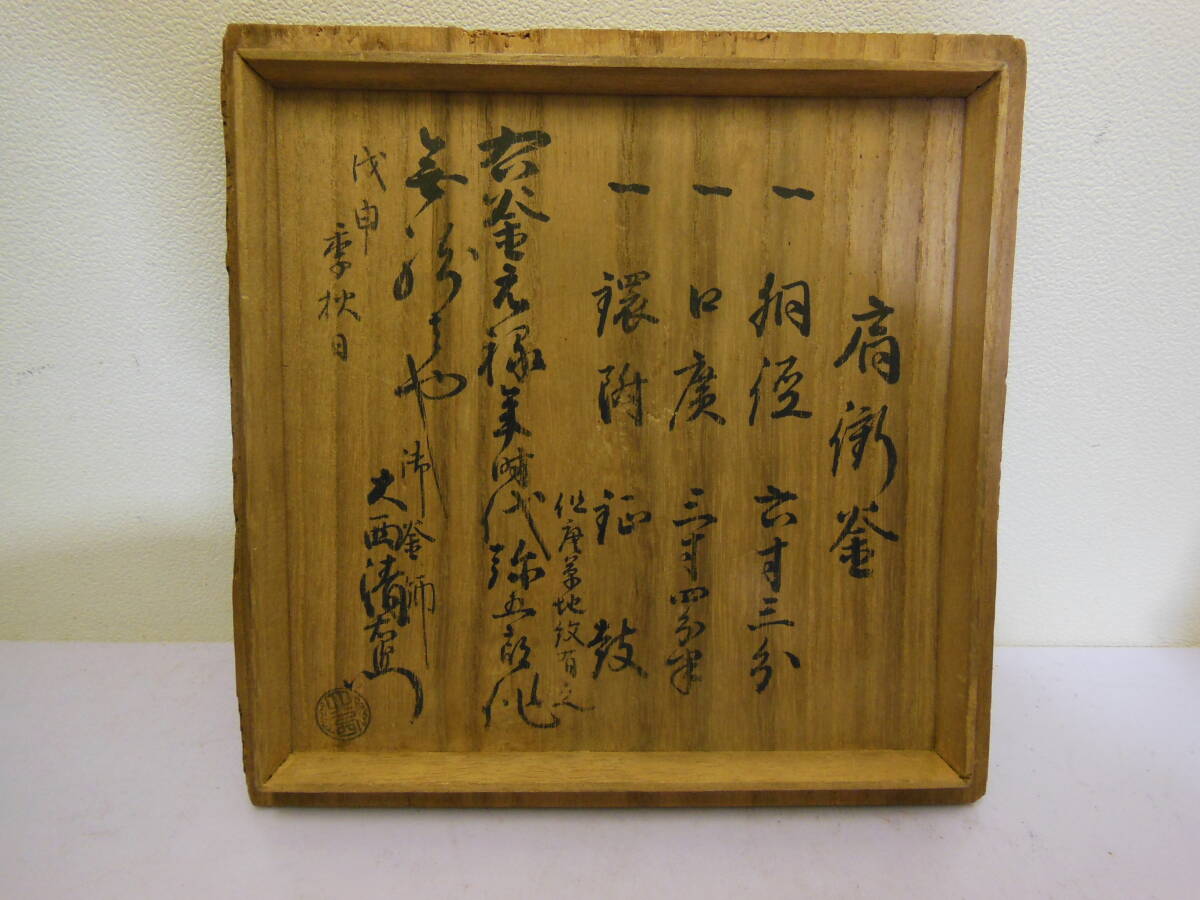 肩衝釜
一 胴径 六寸三分
一 口廣 三寸四分半
一 環附 鉦鼓
但唐草地紋有之
右釜元禄年時代弥五郎作
無紛者也
戊申
季秋日
御釜師
大西清右衛門